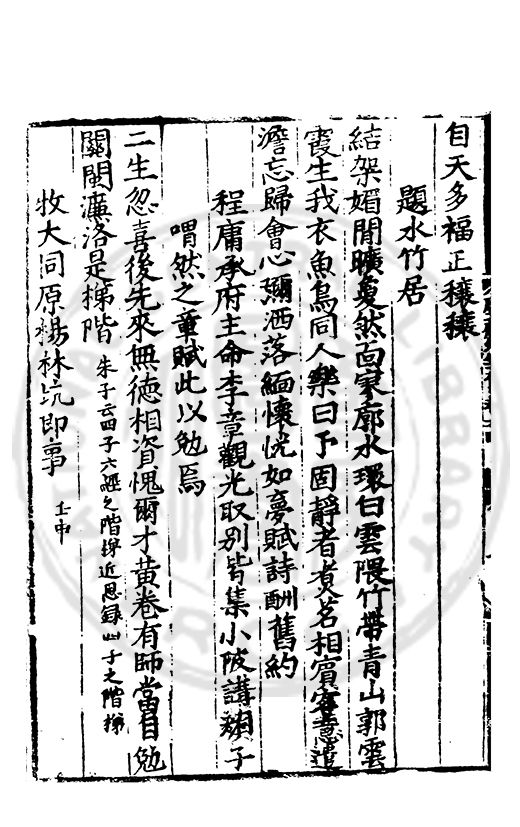 自天多福正穰穰
題水竹居
結架媚閒曠夐然面寥廓水環白雲隈竹帶青山郭雲
霞生我衣魚鳥同人樂曰予固靜者煮茗相賓客意遣
澹忘歸會心彌洒落緬懷恍如夢賦詩酬舊約
程庸承府主命李章觀光取別皆集小陂講 子
喟然之章賦此以勉焉
二生忽喜後先來無德相資愧爾才黃卷有師當自勉
關閩濂洛是梯階 朱子云四子六經之階梯近思錄四子之階梯
牧大同原楊林坑即事 壬申